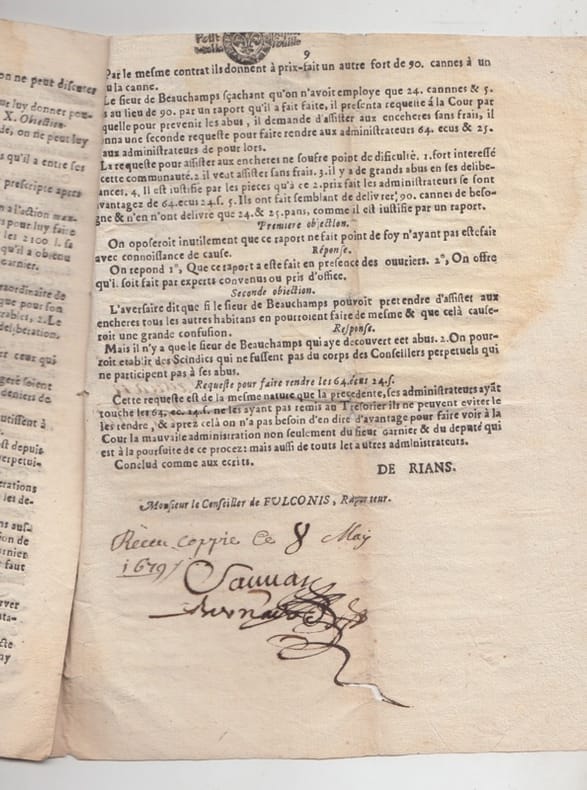 on ne peut discutes
luy donner pou-
X. Obiection
de, on ne peut luy
s qu'il a entre ses
prescripte apres
n a l'action max-
mais pour faire
les 2100 l. sa
qu'il a obtenu
garnier.
raordinaire de
que pour son
rables, 2. Le
deliberation.
er ceux qui
geré soient
deniers de
utissent à
st depuis
perpetui-
erations
les de-
ns aus-
ion de
rnier
faut
rver
nta-
9
Par le mesme contrat ils donnent à prix-fait un autre fort de 90. cannes à un
u la canne.
Le sieur de Beauchamps sçachant qu'on n'avoit employe que 24. cannnes & 5.
s au lieu de 90. par un raport qu'il a fait faite, il presenta requeite á la Cour par
quelle pour prevenir les abus, il demande d'assister aux encheres sans frais, il
onna une seconde requeste pour faire rendre aux administrateurs 64. ecus & 25.
aux administrateurs de pour lors.
La requeste pour assister aux encheres ne soufre point de dificulté. 1. fort interessé
cette communauté. 2 il veut assister sans frais. 3 il y a de grands abus en ses delibe-
ances. 4. Il est iustifié par les pieces qu'à ce 2. prix fait les administrateurs se sont
vantagez de 64. ecus 24. s. 5. Ils ont fait semblant de delivrer, 90. cannes de beso-
gne & n'en n'ont delivré que 24. & 25. pans, comme il est iustifié par un raport.
Premiere obiection.
On oposeroit inutilement que ce raport ne fait point de foy n'ayant pas esté fait
avec connoissance de cause. Réponse.
On repond 1°, Que ce raport a esté fait en presence des ouuriers. 2°, On offre
qu'il soit fait par experts convenus ou pris d'office.
Seconde obiection.
L'aversaire dit que si le sieur de Beauchamps pouvoit pretendre d'assister aux
encheres tous les autres habitans en pourroient faire de mesme & que celà cause-
roit une grande confusion. Response.
Mais il n'y a que le sieur de Beauchamps qui aye decouvert cet abus. 2. On pour-
roit etablir des Scindics qui ne fussent pas du corps des Conseillers perpetuels qui
ne participent pas à ses abus.
Requeste pour faire rendre les 64. ecus 24. s.
Cette requeste est de la mesme nature que la precedente, ses administrateurs ayãt
touche les 64. ec. 24. s. ne les ayant pas remis au Tresorier ils ne peuvent eviter le
les rendre, & aprez celà on n'a pas besoin d'en dire d'avantage pour faire voir à la
Cour la mauvaise administration non seulement du sieur Garnier & du deputé qui
est à la poursuite de ce procez: mais aussi de touts les autres administrateurs.
Conclud comme aux ecrits.
DE RIANS.
Monsieur le Conseiller de FULCONIS, Raporteur.
Receu coppie ce 8 May
1679